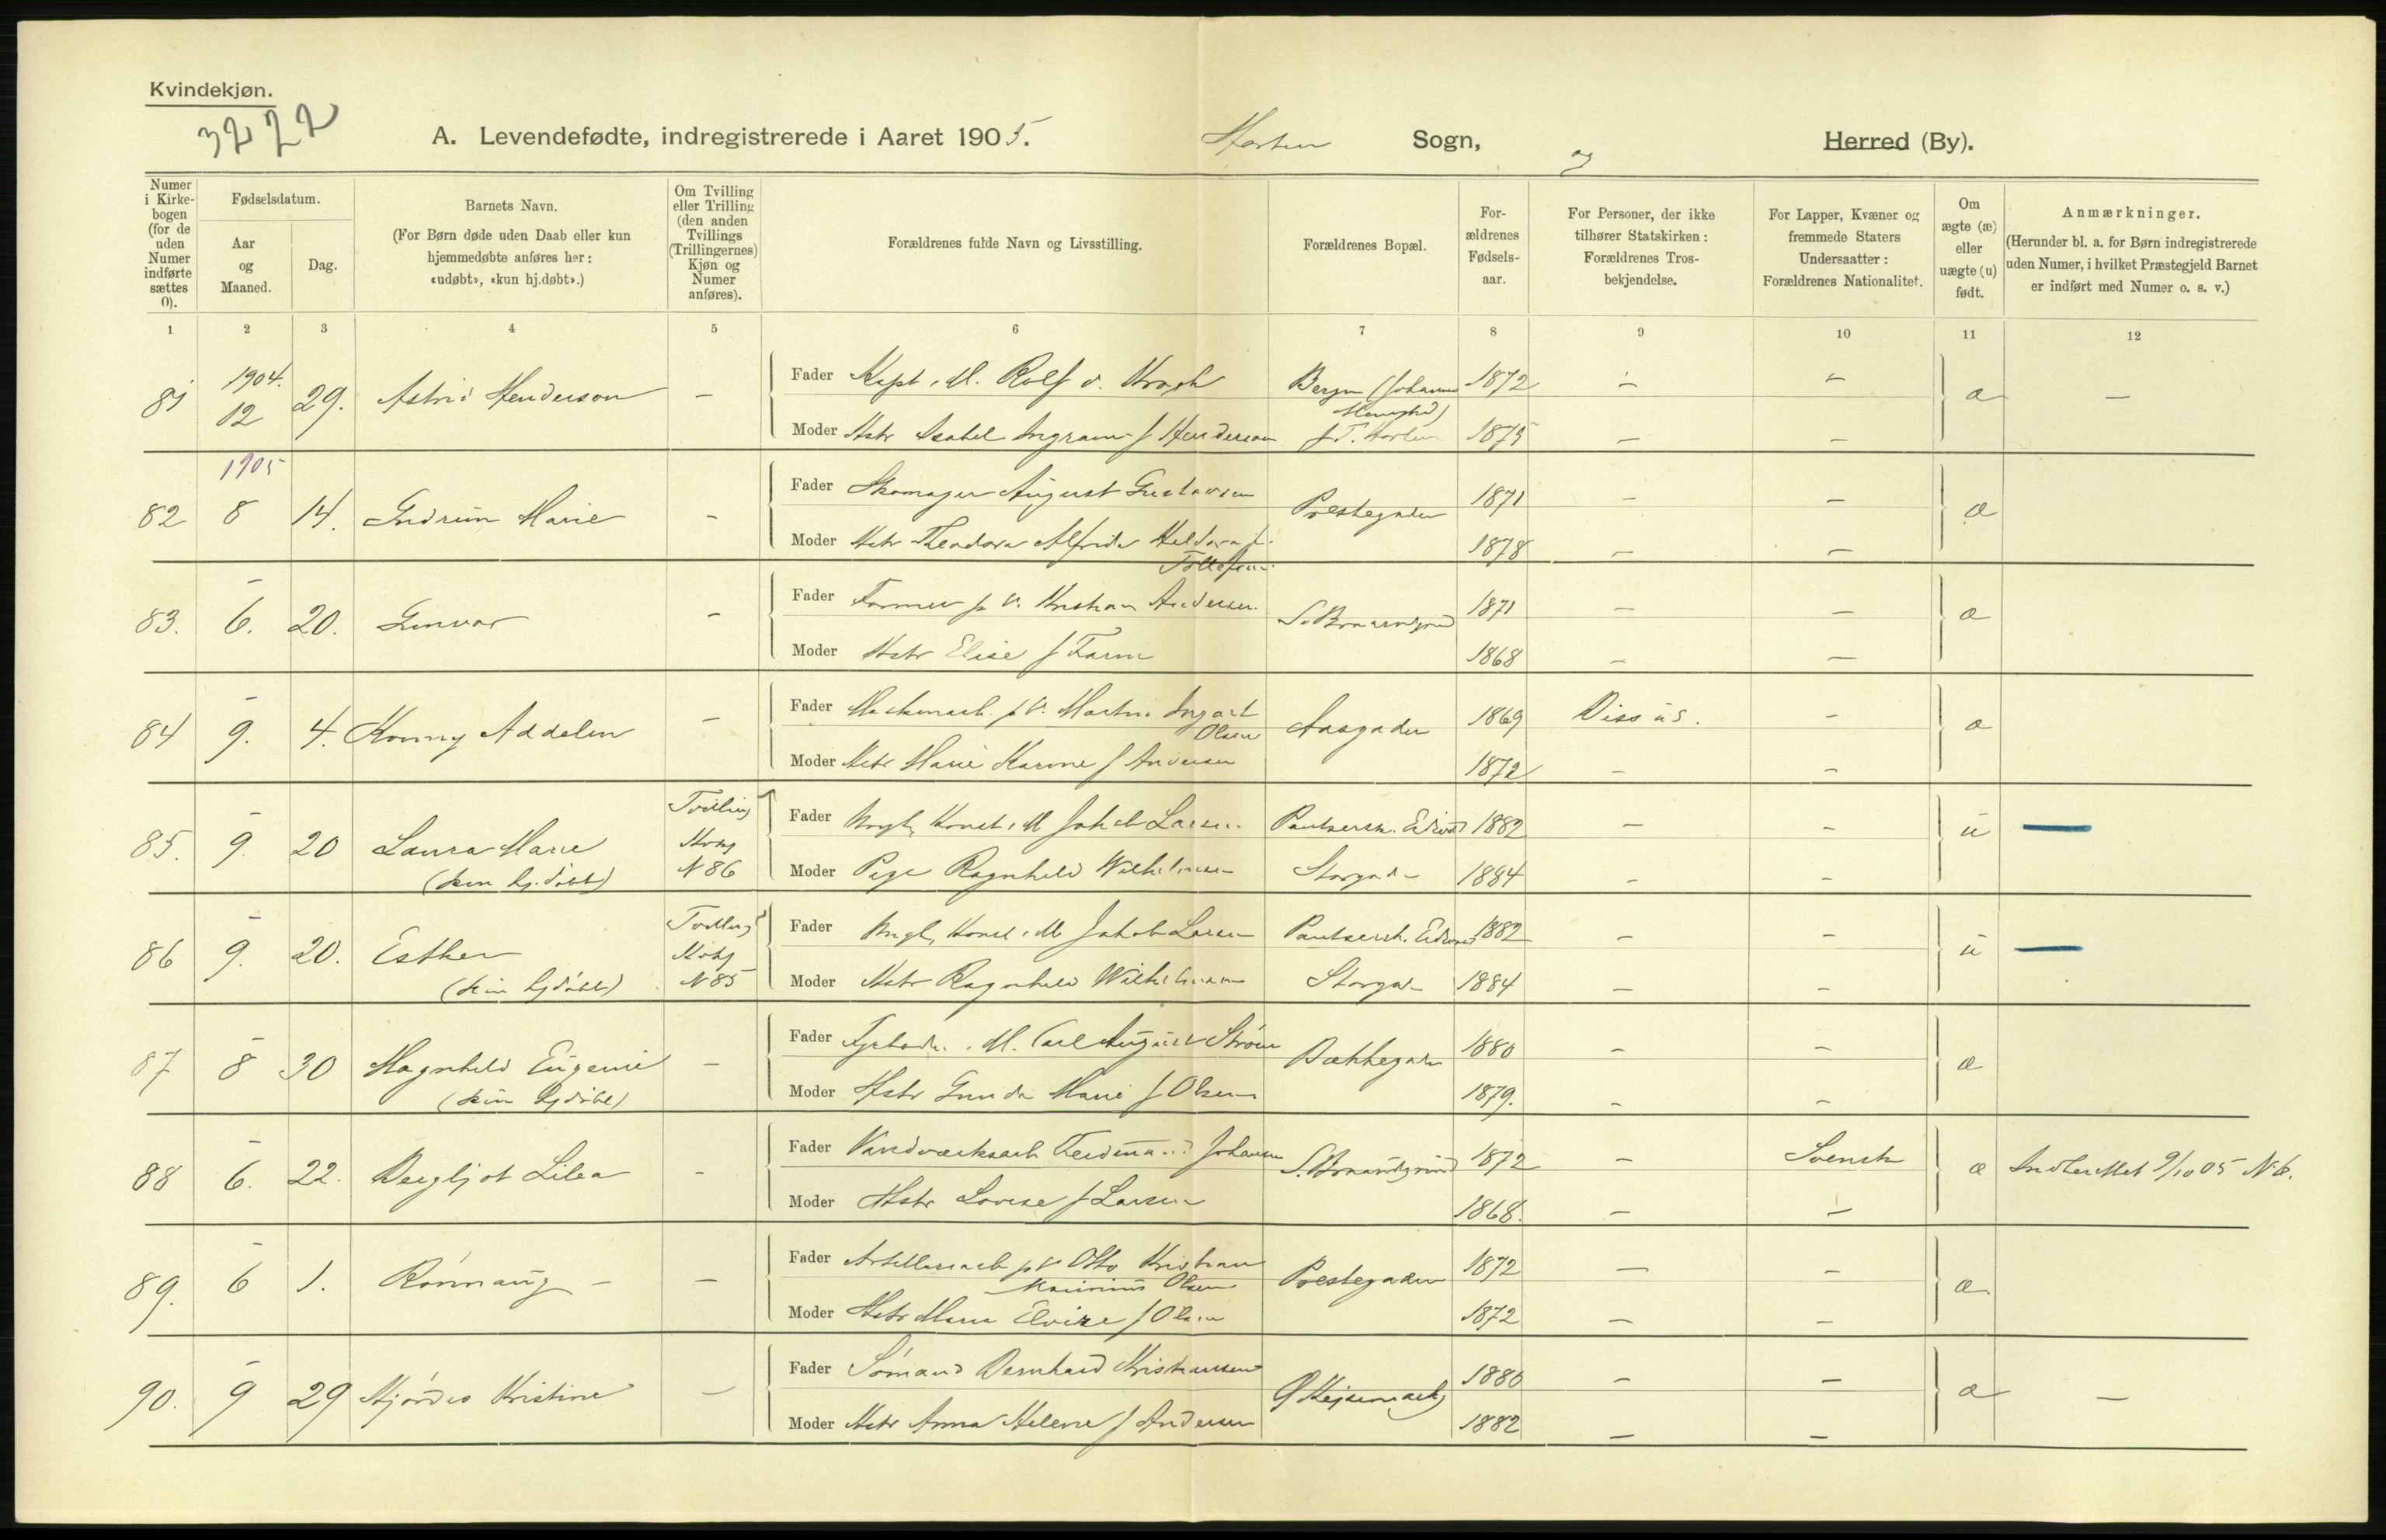 Kvindekjøn.
3222
A. Levendefødte, indregistrerede i Aaret 1905. Horten Sogn, og Herred (By).
Numer i Kirkebogen (for de uden Numer indførte sættes 0).
Fødselsdatum.
Aar og Maaned.
Dag.
Barnets Navn.
(For Børn døde uden Daab eller kun hjemmedøbte anføres her: «udøbt», «kun hj.døbt».)
Om Tvilling eller Trilling (den anden Tvillings (Trillingernes) Kjøn og Numer anføres).
Forældrenes fulde Navn og Livsstilling.
Forældrenes Bopæl.
Forældrenes Fødselsaar.
For Personer, der ikke tilhører Statskirken: Forældrenes Trosbekjendelse.
For Lapper, Kvæner og fremmede Staters Undersaatter: Forældrenes Nationalitet.
Om ægte (æ) eller uægte (u) født.
Anmærkninger.
(Herunder bl. a. for Børn indregistrerede uden Numer, i hvilket Præstegjeld Barnet er indført med Numer o. s. v.)
1 2 3 4 5 6 7 8 9 10 11 12
81 1904. 12 29. Astrid Henderson —
Fader Kapt. i M. Rolf v. Krogh Bergen 1872 — —
Moder Hstr Isabel Ingram f Henderson f. T. Horten 1875 — — æ —
1905
82 8 14. Gudrun Marie —
Fader Skomager August Gustavsen Prestegaden 1871 — —
Moder Hstr Theodora Alfrida Haldora f. Tollefsen 1878 — — æ
83. — 6. 20. Gunvor —
Fader Former p V. Kristian Andersen S. Braarudgrund 1871 — —
Moder Hstr Elise f Farm 1868 — — æ
84 — 9. 4. Konny Addelen —
Fader Maskinarb. p V. Martin Ingart Olsen Aasgaden 1869 Diss us. —
Moder Hstr Marie Karine f Andersen 1872 — — æ
85. — 9. 20 Laura Marie (kun hj. døbt) Tvilling Kvkj N 86
Fader Ungk. Konst. i M Jakob Larsen Pantsersk. Eidsvold 1882 — —
Moder Pige Ragnhild Wilhelmsen Storgad— 1884 — — u —
86 — 9. 20. Esther (kun hj døbt) Tvilling Kvkj N 85
Fader Ungk. Konst. i M Jakob Larsen Pantsersk. Eidsvold 1882 — —
Moder Hstr Ragnhild Wilhelmsen Storgad— 1884 — — u —
87 — 8 30 Magnhild Eugenie (kun hj døbt) —
Fader Fyrbøder i M. Carl August Strøm Bakkegaden 1880 — —
Moder Hstr Gunda Marie f Olsen 1879. — — æ
88 — 6. 22. Bergljot Lilea —
Fader Vandværksarb Ferdinand Johansen S. Braarudgrund 1872 — Svensk
Moder Hstr Lovise f Larsen 1868. — — æ Indberettet 9/10 05 N 6.
89. — 6 1. Rønnaug — —
Fader Artilleriarb p V Otto Kristian Marinius Olsen Prestegaden 1872 — —
Moder Hstr Maria Elvire f Olsen 1872 — — æ
90. — 9 29 Hjørdis Kristine —
Fader Sømand Bernhard Kristiansen 1880 — —
Moder Hstr Anna Helene f Andersen 1882 — — æ —